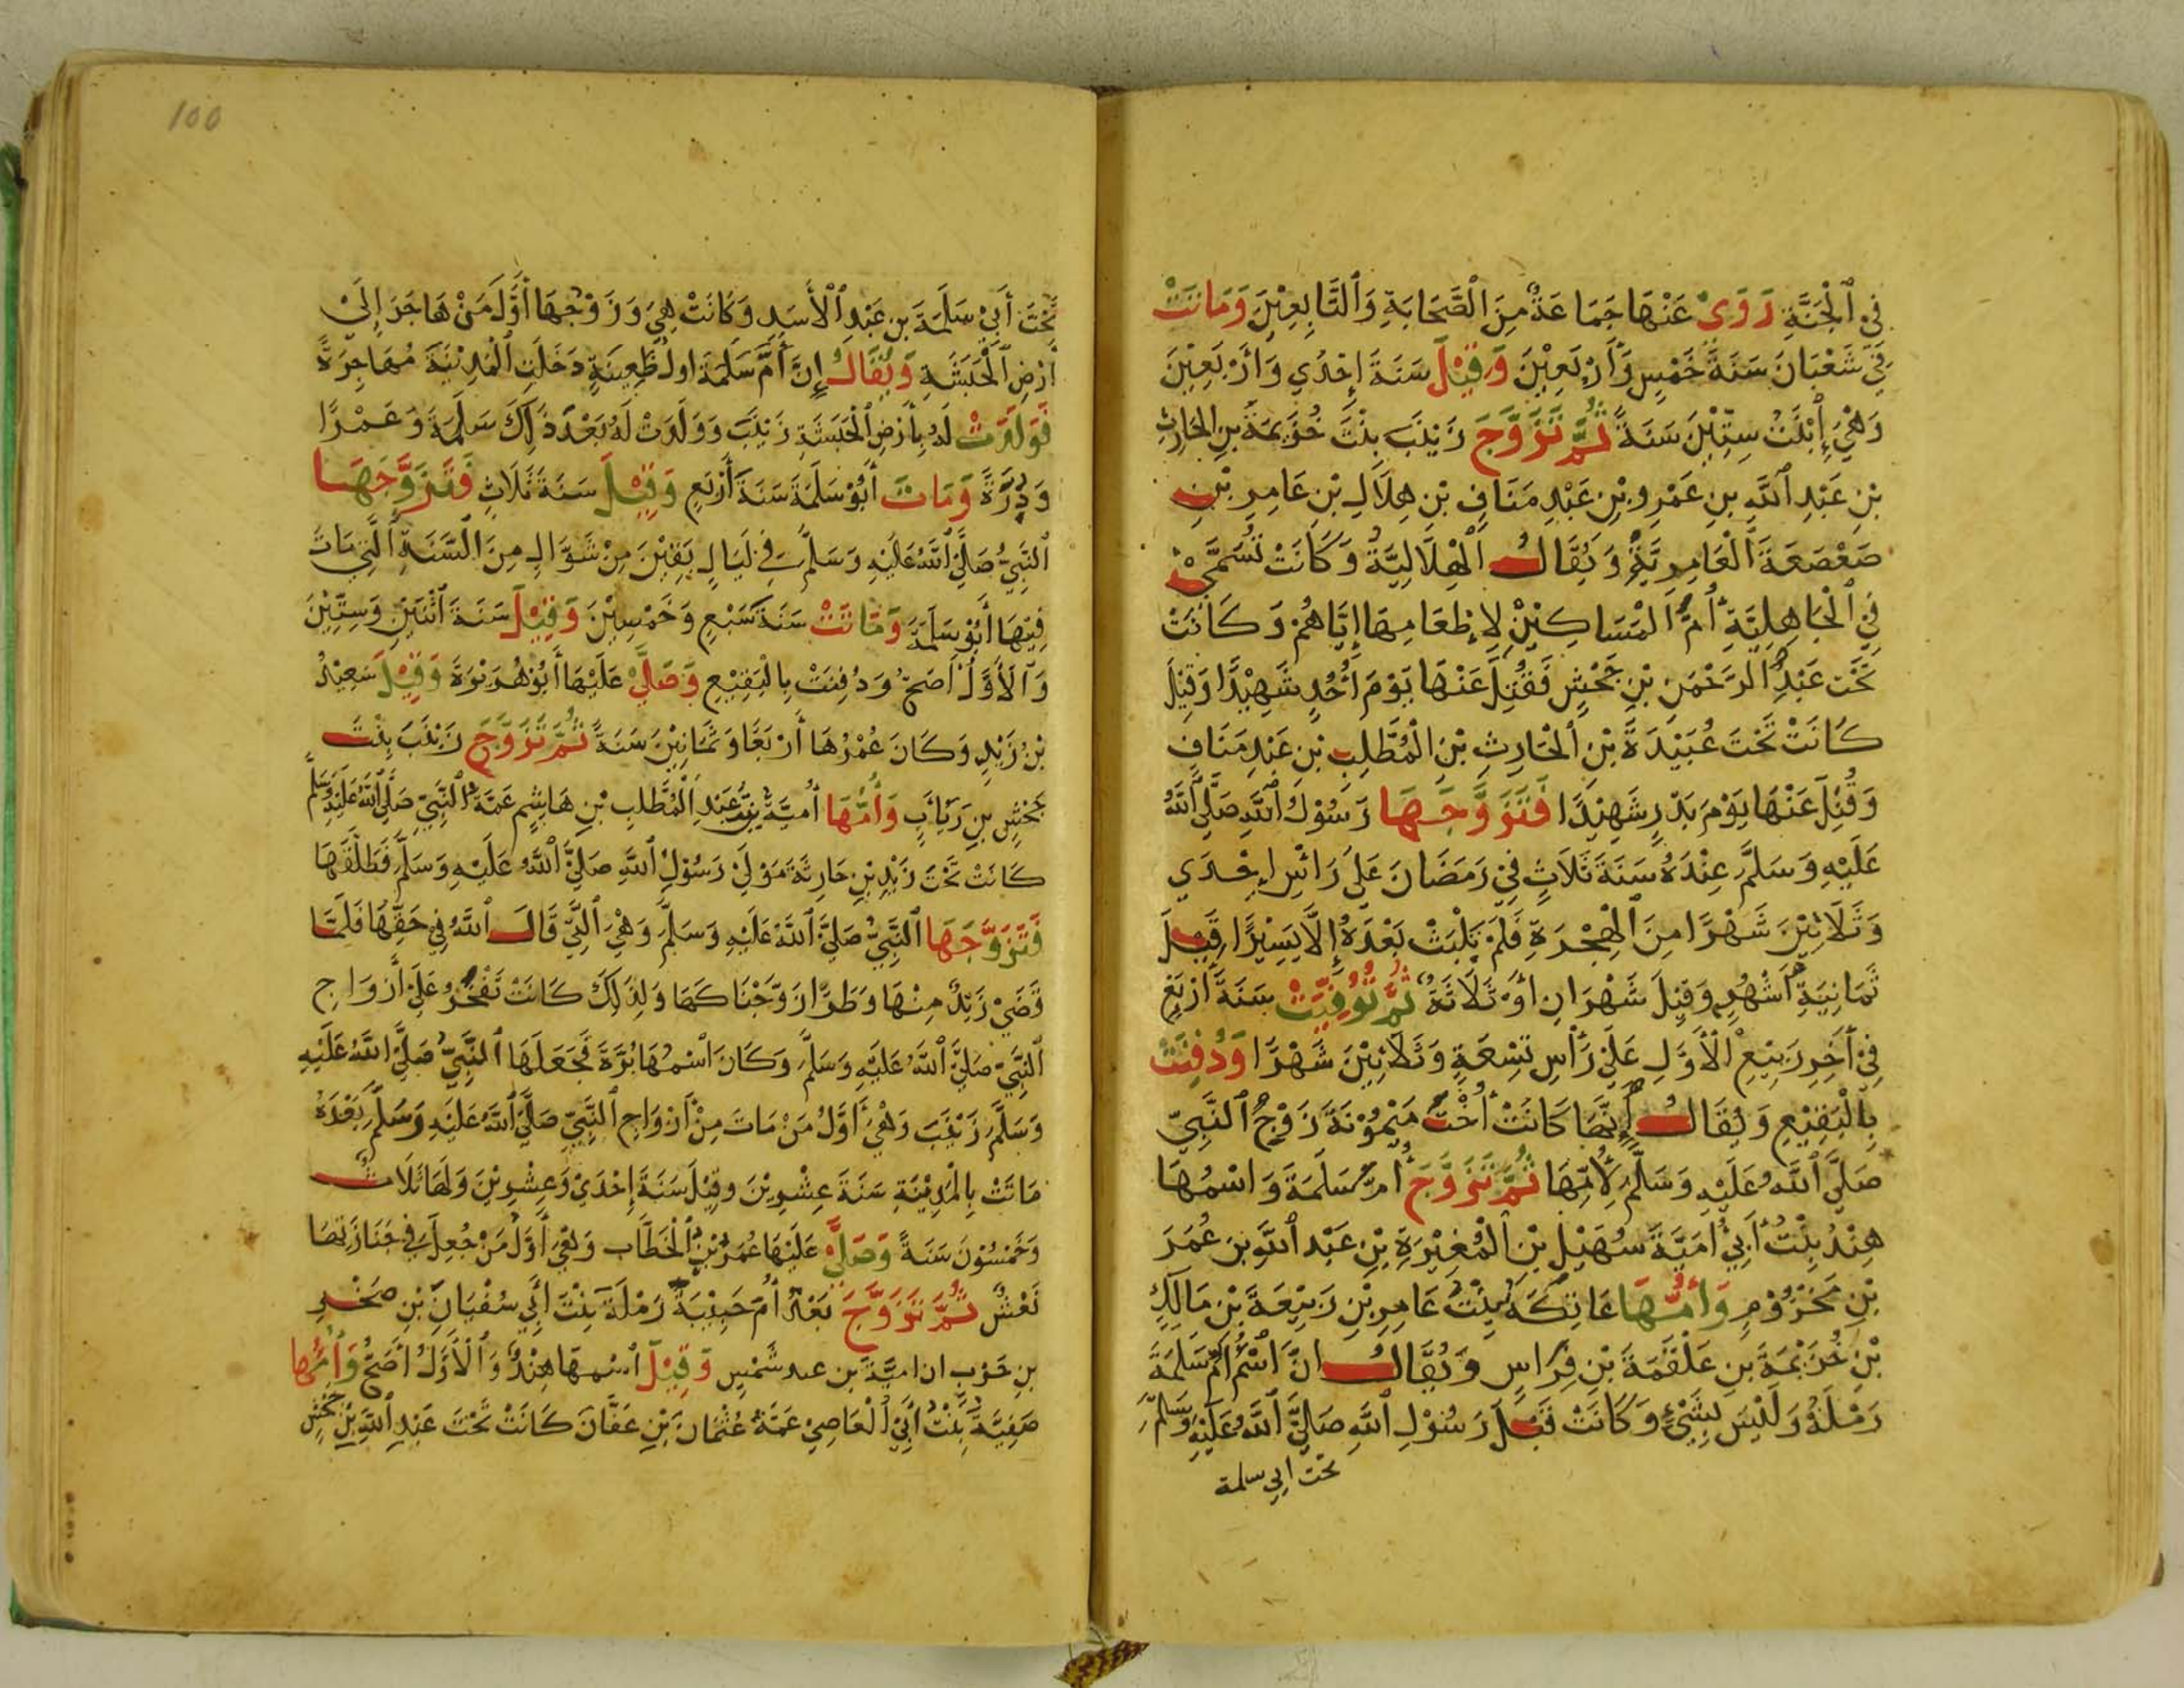 فِي ٱلْجَنَّةِ رَوَىٰ عَنْهَا جَمَاعَةٌ مِنَ ٱلصَّحَابَةِ وَٱلتَّابِعِيْنَ وَمَاتَتْ
فِي شَعْبَانَ سَنَةَ خَمْسٍ وَأَرْبَعِيْنَ وَقِيْلَ سَنَةَ إِحْدَي وَأَرْبَعِيْنَ
وَهْيَ إِبْنَتُ سِتِّيْنَ سَنَةً ثُمَّ تَزَوَّجَ زَيْنَبَ بِنْتَ خُزَيْمَةَ بْنِ الحَارِثِ
بْنِ عَبْدِ ٱللَّهِ بنِ عَمْرِو بْنِ عَبْدِ مَنَافِ بْنِ هِلَالِ بْنِ عَامِرِ بْنِ
صَعْصَعَةَ ٱلْعَامِرِيَّةِ وَيُقَالُ ٱلْهِلَالِيَّةُ وَكَانَتْ تُسَمَّى
فِي ٱلْجَاهِلِيَّةِ أُمَّ ٱلْمَسَاكِيْنِ لِإِطْعَامِهَا إِيَّاهُمْ وَكَانَتْ
تَحْتَ عَبْدِ الرَّحْمَنِ بْنِ جَحْشٍ فَقُتِلَ عَنْهَا يَوْمَ أُحُدٍ شَهِيْدًا وَقِيْلَ
كَانَتْ تَحْتَ عُبَيْدَةَ بْنِ ٱلْحَارِثِ بْنِ الْمُطَّلِبِ بْنِ عَبْدِ مَنَافٍ
وَقُتِلَ عَنْهَا يَوْمَ بَدْرٍ شَهِيْدًا فَتَزَوَّجَهَا رَسُوْلُ ٱللَّهِ صَلَّى ٱللَّهُ
عَلَيْهِ وَسَلَّمَ عِنْدَهُ سَنَةَ ثَلَاثٍ فِيْ رَمَضَانَ عَلَى رَأْسِ إِحْدَي
وَثَلَاثِيْنَ شَهْرًا مِنَ ٱلْهِجْرَةِ فَلَمْ يَلْبَثْ بَعْدَهُ إِلَّا يَسِيْرًا قِيْلَ
ثَمَانِيَةَ أَشْهُرٍ وَقِيْلَ شَهْرَانِ أَوْ ثَلَاثَةٌ ثُمَّ تُوُفِّيَتْ سَنَةَ أَرْبَعٍ
فِيْ آخِرِ رَبِيْعِ ٱلْأَوَّلِ عَلَىٰ رَأْسِ تِسْعَةٍ وَثَلَاثِيْنَ شَهْرًا وَدُفِنَتْ
بِالْبَقِيْعِ وَيُقَالُ إِنَّهَا كَانَتْ أُخْتَ مَيْمُوْنَةَ زَوْجِ ٱلنَّبِيِّ
صَلَّىٰ ٱللَّهُ عَلَيْهِ وَسَلَّمَ لِأُمِّهَا ثُمَّ تَزَوَّجَ أُمَّ سَلَمَةَ وَاسْمُهَا
هِنْدُ بِنْتُ أَبِي أُمَيَّةَ سُهَيْلِ بْنِ ٱلْمُغِيْرَةِ بْنِ عَبْدِ ٱللَّهِ بنِ عُمَرَ
بْنِ مَخْزُوْمٍ وَأُمُّهَا عَاتِكَةُ بِنْتُ عَامِرِ بْنِ رَبِيْعَةَ بْنِ مَالِكِ
بْنِ خُزَيْمَةَ بنِ عَلْقَمَةَ بْنِ فِرَاسٍ وَيُقَالُ انَّ اسْمُ أُمِّ سَلَمَةَ
رَمْلَةُ وَلَيْسَ بِشَيْءٍ وَكَانَتْ قَبْلَ رَسُوْلِ ٱللَّهِ صَلَّىٰ ٱللَّهُ عَلَيْهِ وَسَلَّمَ
تحت ابي سلمة
100
تَحْتَ أَبِيْ سَلَمَةَ بنِ عَبْدِ ٱلْأَسَدِ وَكَانَتْ هِيَ وَزَوْجُهَا أَوَّلَ مَنْ هَاجَرَ إِلَىٰ
أَرْضِ ٱلْحَبَشَةِ وَيُقَالُ إِنَّ أُمَّ سَلَمَةَ اولُ ظَعِينَةٍ دَخَلَتِ ٱلْمَدِيْنَةَ مُهَاجِرَةً
فَوَلَدَتْ لَهُ بِأَرْضِ ٱلْحَبَشَةِ زَيْنَبَ وَوَلَدَتْ لَهُ بَعْدَ ذَلِكَ سَلَمَةَ وَعَمْرًا
وَدُرَّةً وَمَاتَ أَبُوْ سَلَمَةَ سَنَةَ أَرْبَعٍ وَقِيْلَ سَنَةَ ثَلَاثٍ فَتَزَوَّجَهَا
ٱلنَّبِيُّ صَلَّىٰ ٱللَّهُ عَلَيْهِ وَسَلَّمَ فِي لَيَالٍ بَقِيْنَ مِنْ شَوَّالٍ مِنَ ٱلسَّنَةِ ٱلَّتِي مَاتَ
فِيْهَا أَبُوْ سَلَمَةَ وَمَاتَتْ سَنَةَ سَبْعٍ وَخَمْسِيْنَ وَقِيْلَ سَنَةَ ٱثْنَيْنِ وَسِتِّيْنَ
وَٱلْأَوَّلُ أَصَحُّ وَدُفِنَتْ بِالْبَقِيْعِ وَصَلَّىٰ عَلَيْهَا أَبُوْ هُرَيْرَةَ وَقِيْلَ سَعِيْدُ
بْنُ زَيْدٍ وَكَانَ عُمْرُهَا أَرْبَعًا وَثَمَانِيْنَ سَنَةً ثُمَّ تَزَوَّجَ زَيْنَبَ بِنْتَ
جَحْشِ بنِ رَبَابٍ وَأُمُّهَا أُمَيَّةُ بِنْتُ عَبْدِ ٱلْمُطَّلِبِ بْنِ هَاشِمٍ عَمَّةُ ٱلنَّبِيِّ صَلَّى ٱللَّهُ عَلَيْهِ وَسَلَّمَ
كَانَتْ تَحْتَ زَيْدِ بْنِ حَارِثَةَ مَوْلَىٰ رَسُوْلِ ٱللَّهِ صَلَّىٰ ٱللَّهُ عَلَيْهِ وَسَلَّمَ فَطَلَّقَهَا
فَتَزَوَّجَهَا ٱلنَّبِيُّ صَلَّىٰ ٱللَّهُ عَلَيْهِ وَسَلَّمَ وَهْيَ ٱلَّتِيْ قَالَ ٱللَّهُ فِي حَقِّهَا فَلَمَّا
قَضَىٰ زَيْدٌ مِنْهَا وَطَرًا زَوَّجْنَاكَهَا وَلِذَلِكَ كَانَتْ تَفْخَرُ عَلَىٰ أَزْوَاجِ
ٱلنَّبِيِّ صَلَّىٰ ٱللَّهُ عَلَيْهِ وَسَلَّمَ وَكَانَ اسْمُهَا بَرَّةَ فَجَعَلَهَا ٱلنَّبِيُّ صَلَّىٰ ٱللَّهُ عَلَيْهِ
وَسَلَّمَ زَيْنَبَ وَهْيَ أَوَّلُ مَنْ مَاتَ مِنْ أَزْوَاجِ ٱلنَّبِيِّ صَلَّىٰ ٱللَّهُ عَلَيْهِ وَسَلَّمَ بَعْدَهُ
مَاتَتْ بِالْمَدِيْنَةِ سَنَةَ عِشْرِيْنَ وَقِيْلَ سَنَةَ إِحْدَيْ وَعِشْرِيْنَ وَلَهَا ثَلَاثٌ
وَخَمْسُوْنَ سَنَةً وَصَلَّىٰ عَلَيْهَا عُمَرُ بْنُ ٱلْخَطَّابِ وَهْيَ أَوَّلُ مَنْ جُعِلَ فِي جَنَازَتِهَا
نَعْشٌ ثُمَّ تَزَوَّجَ بَعْدُ أُمَّ حَبِيْبَةَ رَمْلَةَ بِنْتَ أَبِي سُفْيَانَ بْنِ صَخْرِ
بنِ حَرْبٍ ان اميَّةَ بن عبد شَمْسٍ وَقِيْلَ اسْمهَا هِنْدٌ وَٱلْأَوَّلُ أَصَحُّ وَأُمُّهَا
صَفِيَّةُ بِنْتُ أَبِيْ ٱلْعَاصِيْ عَمَّةُ عُثْمَانَ بْنِ عَفَّانَ كَانَتْ تَحْتَ عَبْدِ ٱللَّهِ بْنِ جَحْشٍ